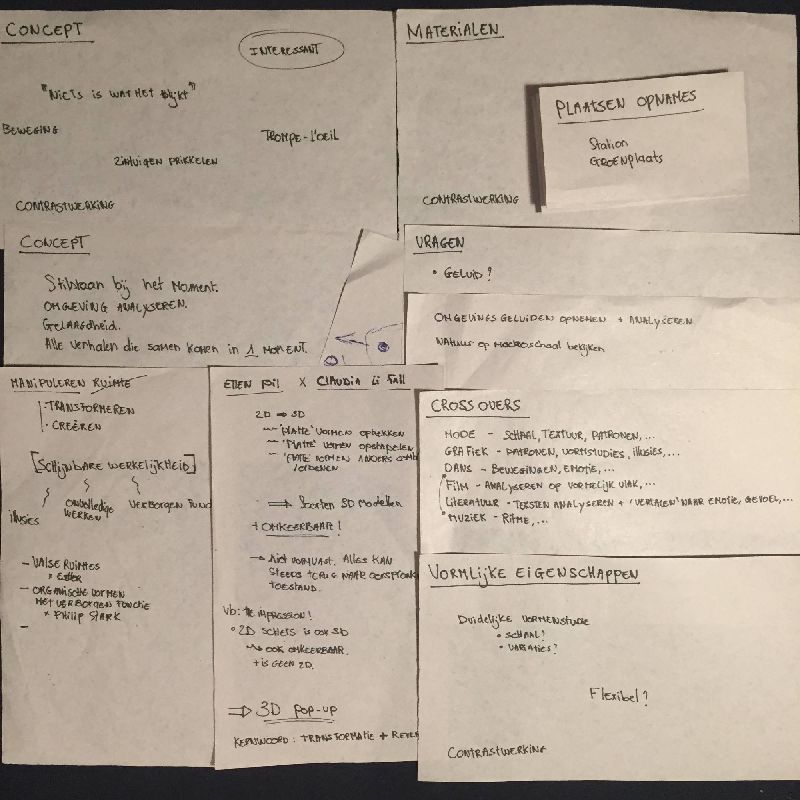 CONCEPT
INTERESSANT
"Niets is wat het lijkt"
BEWEGING
TROMPE-L'OEIL
ZINTUIGEN PRIKKELEN
CONTRASTWERKING
MATERIALEN
PLAATSEN OPNAMES
Station
GROENplaats
CONTRASTWERKING
CONCEPT
Stilstaan bij het moment.
OMGEVING ANALYSEREN.
GELAAGDHEID.
Alle verhalen die samen komen in 1 moment.
VRAGEN
• Geluid?
OMGEVINGSGELUIDEN OPNEMEN + ANALYSEREN
Natuur op macroschaal bekijken
MANIPULEREN RUIMTE
TRANSFORMEREN
CREËREN
[Schijnbare werkelijkheid]
illusies
onvolledige
werken
VERBORGEN FUNC
- VALSE RUIMTES
- ORGANISCHE VORMEN
MET VERBORGEN FUNCTIE
* Philip STARK
-
X CLAUDIA Li
2D ⇒ 3D
— 'PLATTE' VORMEN OPTREKKEN
— 'PLATTE' VORMEN OPSTAPELEN
— 'PLATTE' VORMEN ANDERS COMB
/ORDENEN
⇒ Soorten 3D Modellen
+ OMKEERBAAR!
→ Niet vormvast. Alles kan
steeds terug naar oorspronk
toestand.
Vb: impression!
• 2D schets is ook 3D
↪ OOK OMKEERBAAR.
+ is GEEN 2D.
⇒ 3D POP-UP
KERNWOORD: TRANSFORMATIE + REVER
CROSS OVERS
MODE - SCHAAL, TEXTUUR, PATRONEN,...
GRAFIEK - PATRONEN, VORMSTUDIES, illusies,...
DANS - BEWEGINGEN, EMOTIE,...
FILM - ANALYSEREN OP VORMELIJK VLAK,...
LITERATUUR - TEKSTEN ANALYSEREN + 'VERTALEN' NAAR EMOTIE, GEVOEL,...
MUZIEK - RITME,...
VORMLIJKE EIGENSCHAPPEN
Duidelijke vormenstudie
• SCHAAL!
• VARIATIES?
Flexibel?
CONTRASTWERKING